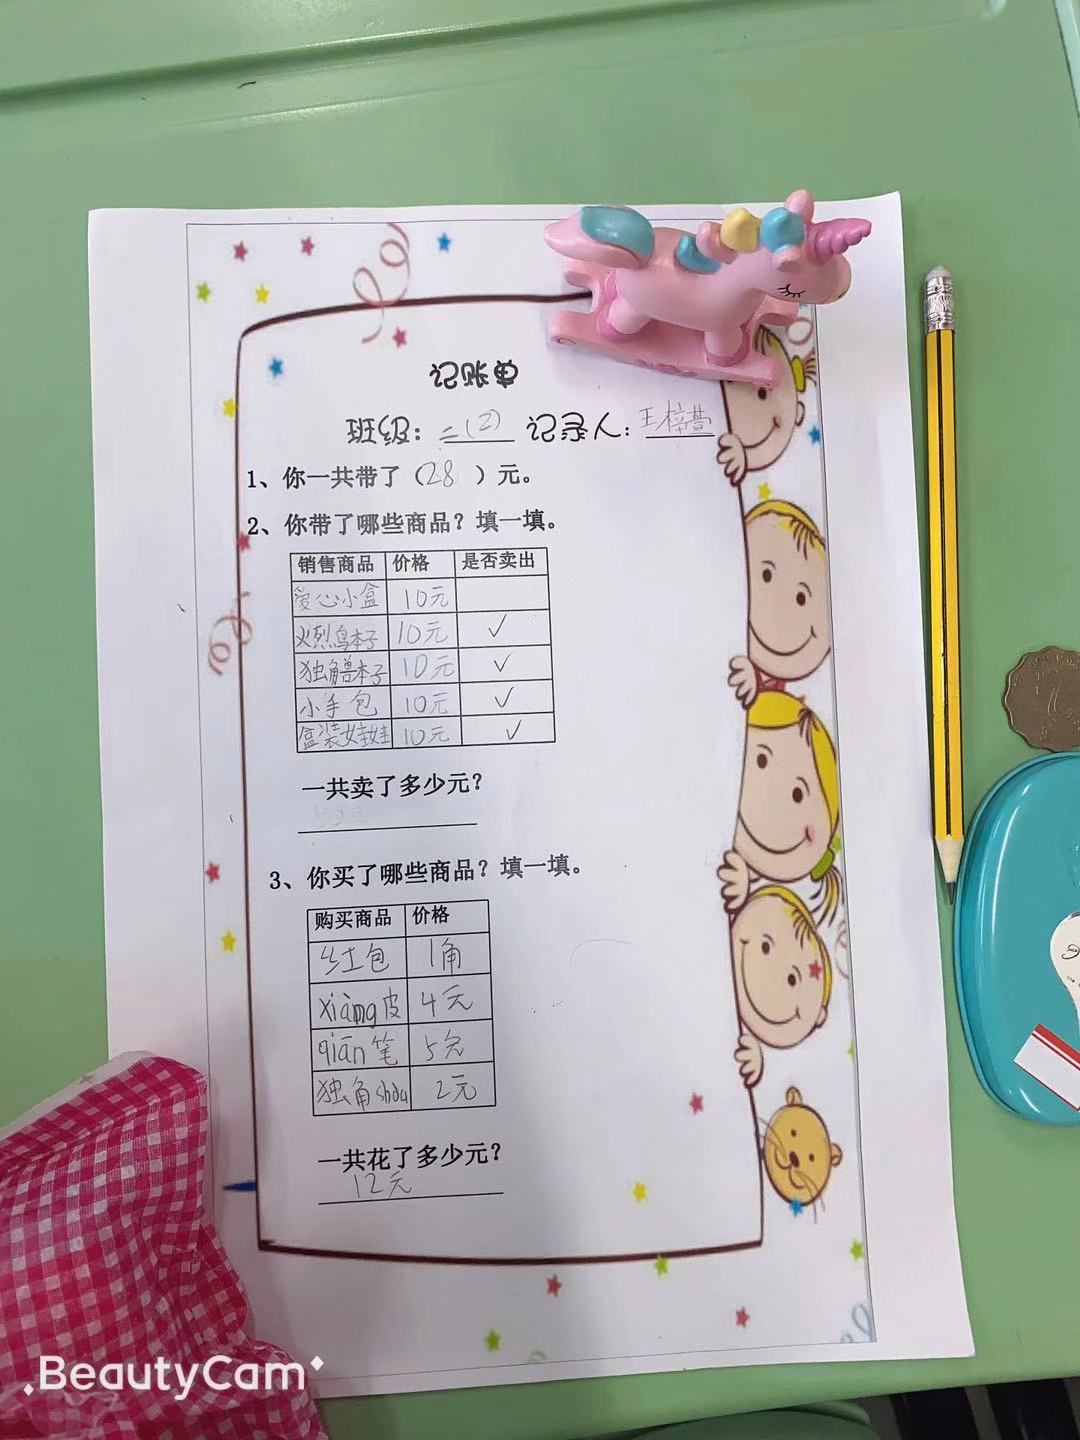 记账单
班级：二(2) 记录人：王梓萱
1、你一共带了（28 ）元。
2、你带了哪些商品？填一填。
销售商品 价格 是否卖出
爱心小盒 10元
火烈鸟本子 10元 ✓
独角兽本子 10元 ✓
小手包 10元 ✓
盒装女娃娃 10元 ✓
一共卖了多少元？
3、你买了哪些商品？填一填。
购买商品 价格
红包 1角
xiàng皮 4元
qiān笔 5元
独角shòu 2元
一共花了多少元？
12元
BeautyCam